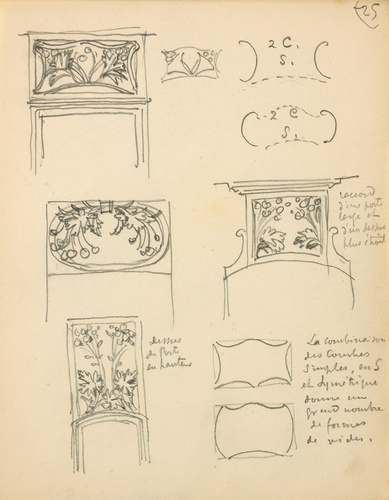 25
2 C.
S.
2 C
S.
raccord
d'une porte
large et
d'un dessus
plus étroit
dessus
de port
en hauteur
La combinaison
des courbes
simples, en S
et symétrique
donne un
grand nombre
de formes
de vides.